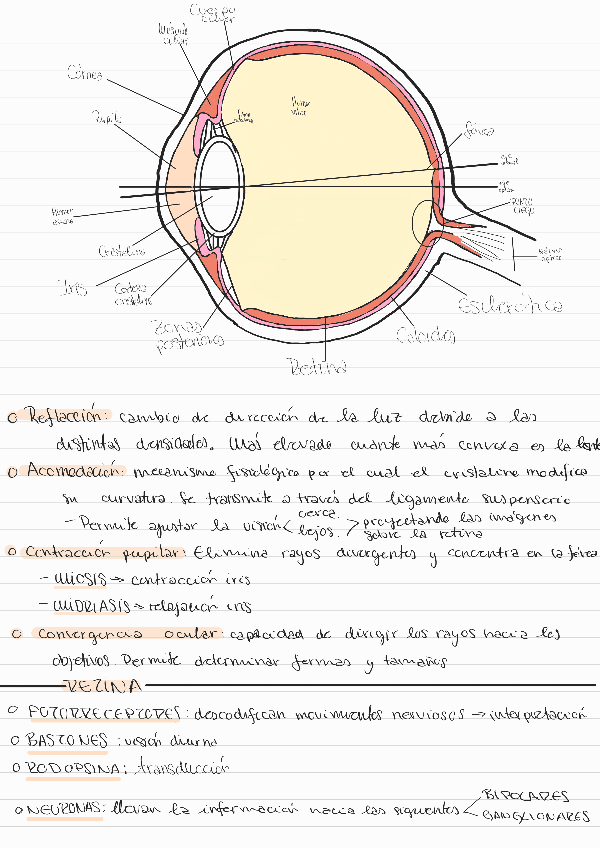 Cuerpo
ciliar
Músculo
ciliar
Córnea
Pupila
Humor
vítreo
fóvea
punto
ciego
Humor
acuoso
Cristalino
Nervio
óptico
Iris
Zonas
posterior
Esclerótica
Coloides
Retina
○ Reflacción: cambio de dirección de la luz debide a las
distintas densidades. Más elevade cuante más convexa es la lente
○ Acomodación: mecanisme fisiológico por el cual el cristaline modifica
su curvatura. Se transmite a través del ligamente suspensorio
- Permite ajustar la visión < cerca. lejos. > proyectande las imágenes
sobre la retina
○ Contracción pupilar: Elimina rayos divergentes y concentra en la fóvea
- MIOSIS → contracción iris
- MIDRIASIS → relajación iris
○ Convergencia ocular: capacidad de dirigir los rayos hacia los
objetivos. Permite determinar formas y tamaños
RETINA
○ FOTORRECEPTORES: descodifican movimientos nerviosos → interpretación
○ BASTONES: visión diurna
○ RODOPSINA: transducción
○ NEURONAS: llevan la información hacia las siguientes < BIPOLARES
GANGLIONARES